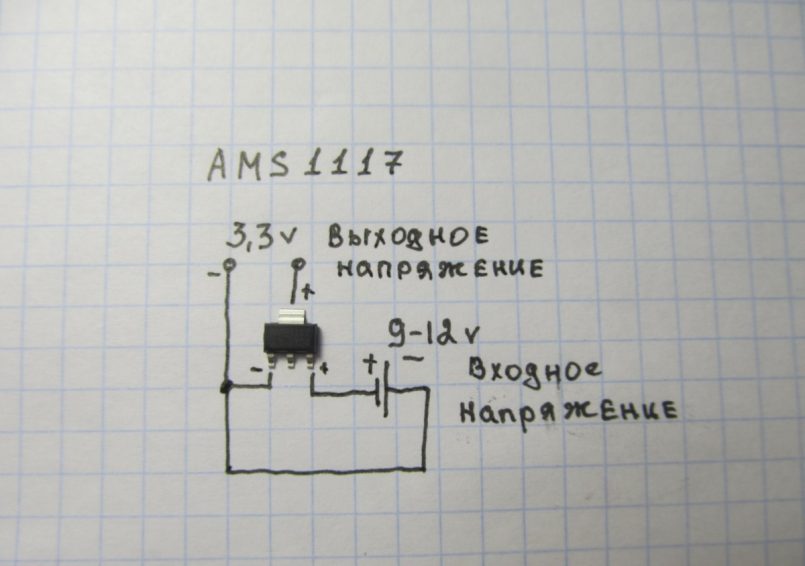 AMS1117
3,3v Выходное
- напряжение
+
9-12v
- + + -
Входное
напряжение